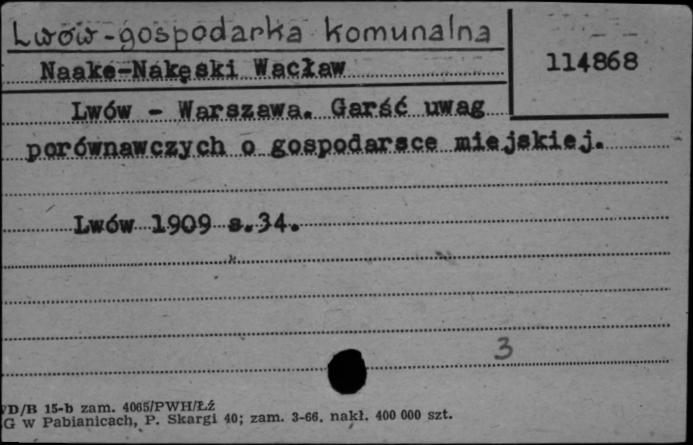 Lwów-gospodarka komunalna
Naake-Nakęski Wacław
114868
Lwów - Warszawa. Garść uwag
porównawczych o gospodarsce miejskiej.
Lwów 1909 s.34.
3
VD/B 15-b zam. 4065/PWH/Łź
G w Pabianicach, P. Skargi 40; zam. 3-66. nakł. 400 000 szt.